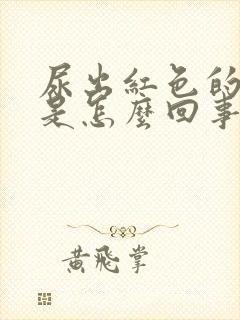 尿出紅色的
是怎麼回事
黃飛掌